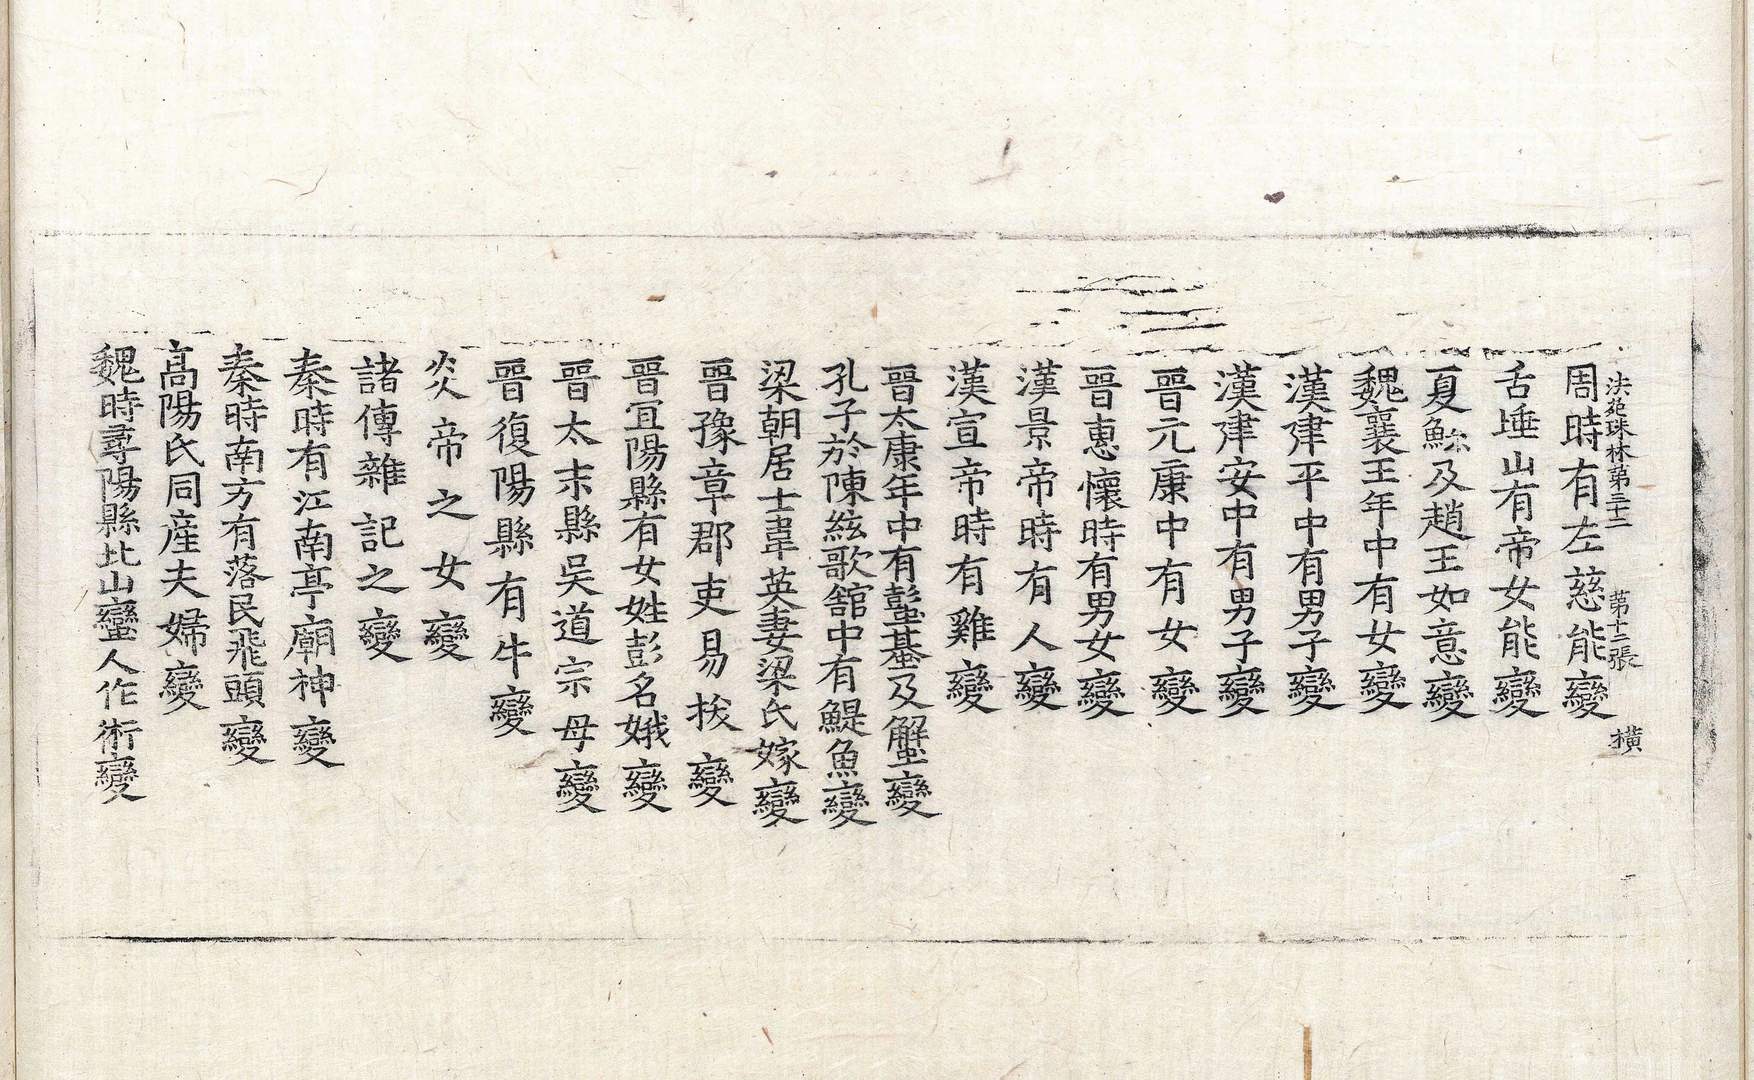 法苑珠林第三十二 第十二張 橫
周時有左慈能變
舌埵山有帝女能變
夏鮌及趙王如意變
魏襄王年中有女變
漢建平中有男子變
漢建安中有男子變
晉元康中有女變
晉惠懷時有男女變
漢景帝時有人變
漢宣帝時有雞變
晉太康年中有蟚蜞及蟹變
孔子於陳絃歌舘中有鯷魚變
梁朝居士韋英妻梁氏嫁變
晉豫章郡吏易拔變
晉宜陽縣有女姓彭名娥變
晉太末縣吳道宗母變
晉復陽縣有牛變
炎帝之女變
諸傳雜記之變
秦時有江南亭廟神變
秦時南方有落民飛頭變
高陽氏同産夫婦變
魏時尋陽縣北山蠻人作術變